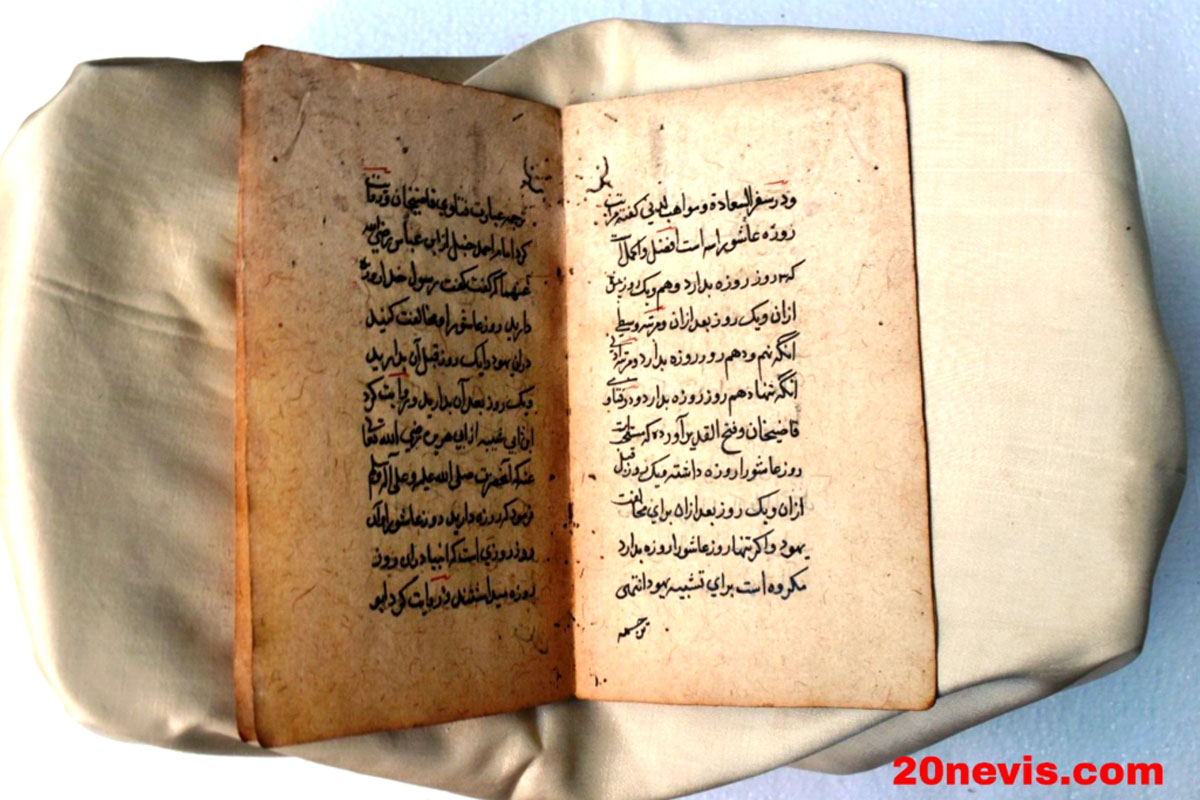 ودر سفر السعادة و مواهب لدني گفته مراتب
روزه عاشورا سه است افضل و اکمل آنست
که سه روز روزه بدارد دهم و یک روز پیش
ازان و یک روز بعد ازان و مرتبه وسطی
آنکه نهم و دهم روز روزه بدارد و مرتبه ادنی
آنکه تنها دهم روز روزه بدارد و در فتاوی
قاضیخان و فتح القدیر آورده که مستحب است
روز عاشورا روزه داشته و یک روز قبل
ازان و یک روز بعد ازان برای مخالفت
یهود و اکر تنها روز عاشورا روزه بدارد
مکروه است برای تشبیه یهود انتهی
ترجمه
ترجمه عبارت فتاوی قاضیخان و روایت
کرد امام احمد حنبل از ابن عباس رضی الله
عنهما که گفت گفت رسول خدا روزه
دارید روز عاشورا و مخالفت کنید
دران یهود و یک روز قبل آن بدارید
و یک روز بعد آن بدارید و روایت کرد
ابن ابی شیبه از ابی هریره رضی الله تعالی
عنه که آنحضرت صلی الله علیه و علی آله وسلم
فرمود که روزه دارید روز عاشورا و آن
روز روزی است که انبیا دران روز
روزه میداشتند و روایت کرد ابو
20nevis.com